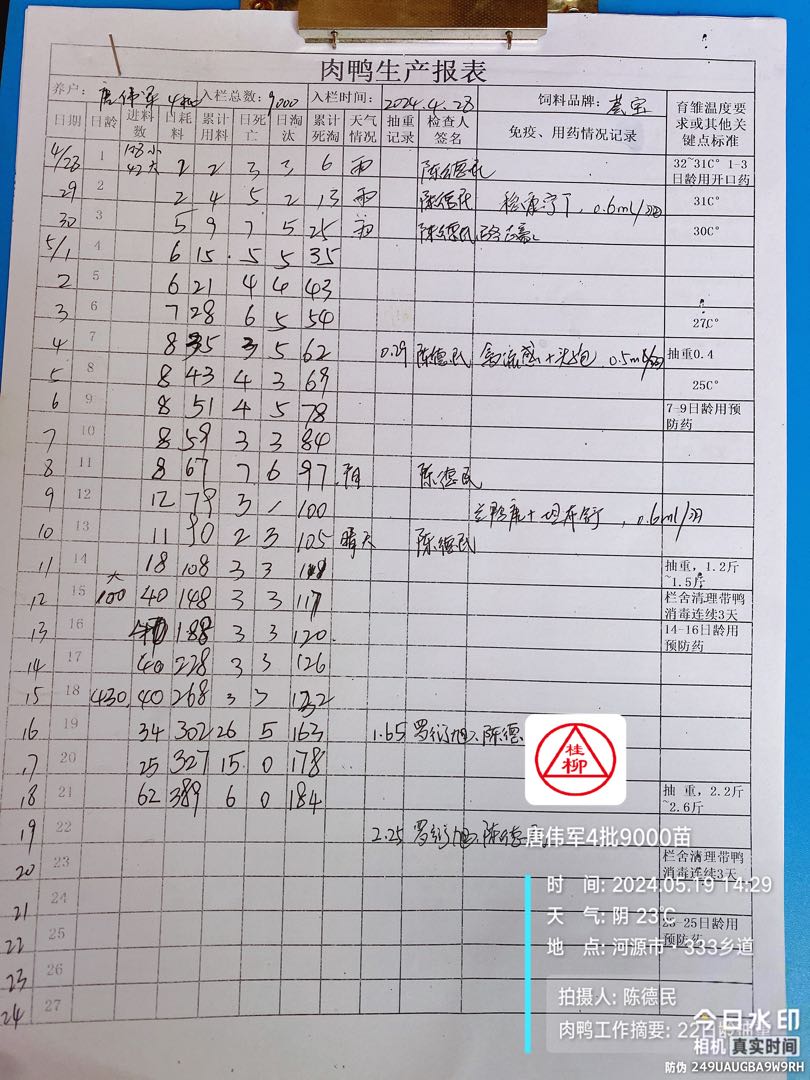 肉鸭生产报表
养户: 唐伟军 4批 入栏总数: 9000 入栏时间: 2024.4.28 饲料品牌:
日期 日龄 进料数 日耗料 累计用料 日死亡 日淘汰 累计死淘 天气情况 抽重记录 检查人签名 免疫、用药情况记录 育雏温度要求或其他关键点标准
4/28 1 2 2 3 3 6 雨 陈德民 32~31C° 1-3日龄用开口药
29 2 2 4 5 2 13 雨 陈德民 0.6ml/羽 31C°
30 3 5 9 7 5 25 陈德民 30C°
5/1 4 6 15 5 5 35
2 5 6 21 4 4 43
3 6 7 28 6 5 54 27C°
4 7 8 35 3 5 62 0.29 陈德民 0.5ml/羽 抽重0.4
5 8 8 43 4 3 69 25C°
6 9 8 51 4 5 78 7-9日龄用预防药
7 10 8 59 3 3 84
8 11 8 67 7 6 97 陈德民
9 12 12 79 3 100 0.6ml/羽
10 13 11 90 2 3 105 晴天 陈德民
11 14 18 108 3 3 抽重,1.2斤~1.5斤
12 15 大100 40 148 3 3 117 栏舍清理带鸭消毒连续3天
13 16 40 188 3 3 120 14-16日龄用预防药
14 17 40 228 3 3 126
15 18 430 40 268 3 3 132
16 19 34 302 26 5 163 1.65 陈德
17 20 25 327 15 0 178
18 21 62 389 6 0 184 抽重,2.2斤~2.6斤
19 22 2.25 陈德民
20 23 栏舍清理带鸭消毒连续3天
21 24
22 25 -25日龄用预防药
23 26
24 27
桂柳
唐伟军4批9000苗
时 间: 2024.05.19 14:29
天 气: 阴 23℃
地 点: 河源市·333乡道
拍摄人: 陈德民
肉鸭工作摘要: 22日龄抽重
今日水印
相机 真实时间
防伪 249UAUGBA9W9RH